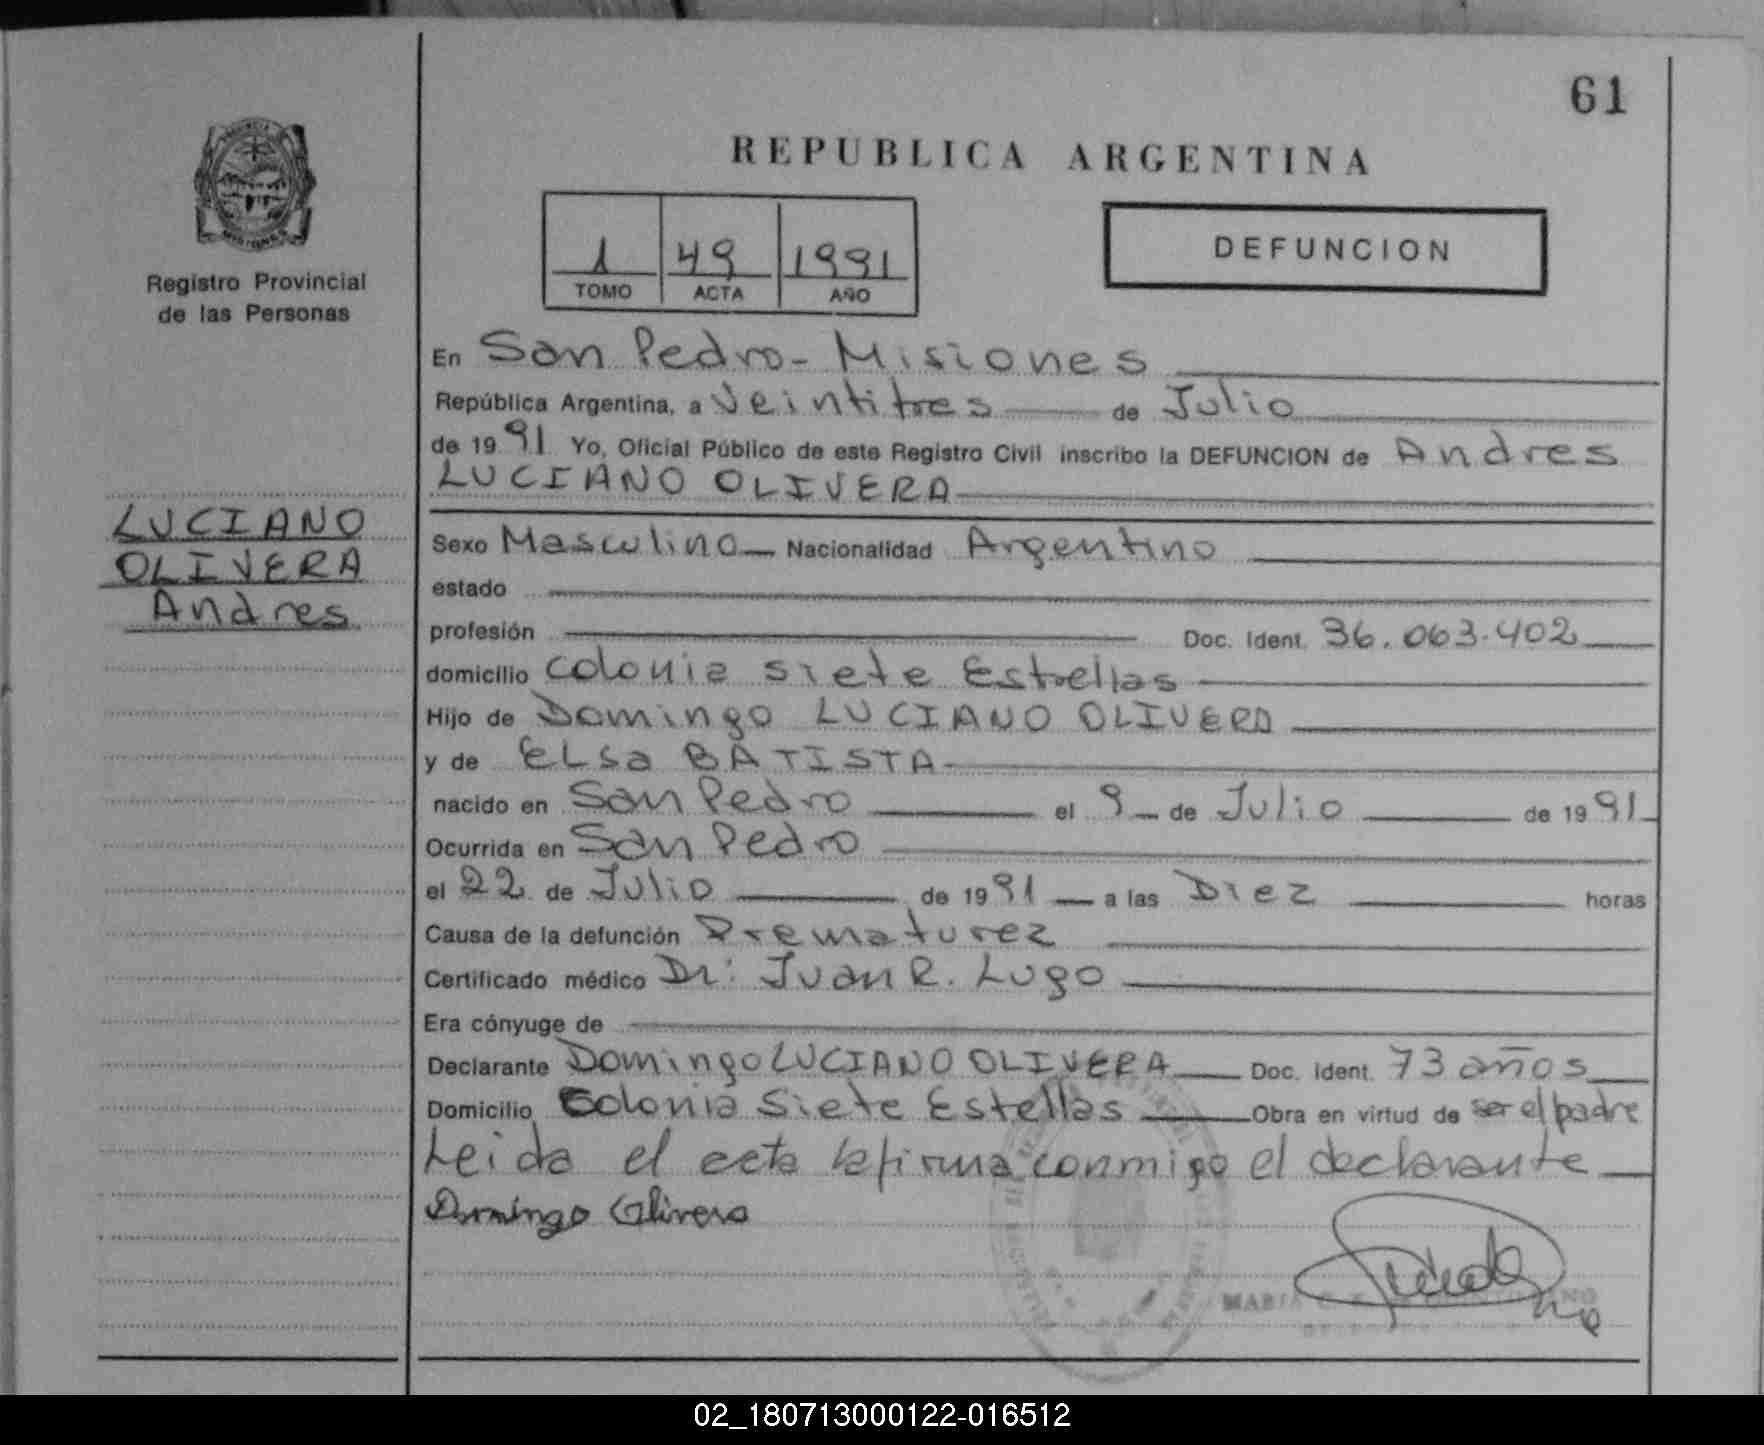 61
REPUBLICA ARGENTINA
Registro Provincial
de las Personas
1 49 1991
TOMO ACTA AÑO
DEFUNCION
En San Pedro - Misiones
República Argentina, a Veintitres de Julio
de 1991 Yo, Oficial Público de este Registro Civil inscribo la DEFUNCION de Andres
LUCIANO OLIVERA
LUCIANO
OLIVERA
Andres
Sexo Masculino Nacionalidad Argentino
estado
profesión Doc. Ident. 36.063.402
domicilio Colonia Siete Estrellas
Hijo de Domingo LUCIANO OLIVERA
y de ELSa BATISTA
nacido en San Pedro el 9 de Julio de 1991
Ocurrida en San Pedro
el 22 de Julio de 1991 a las Diez horas
Causa de la defunción Prematurez
Certificado médico Dr: Juan R. Lugo
Era cónyuge de
Declarante Domingo LUCIANO OLIVERA Doc. Ident. 73 años
Domicilio Colonia Siete Estellas Obra en virtud de ser el padre
Leida el acta la firma conmigo el declarante
Domingo Olivera
MARIA
02_180713000122-016512